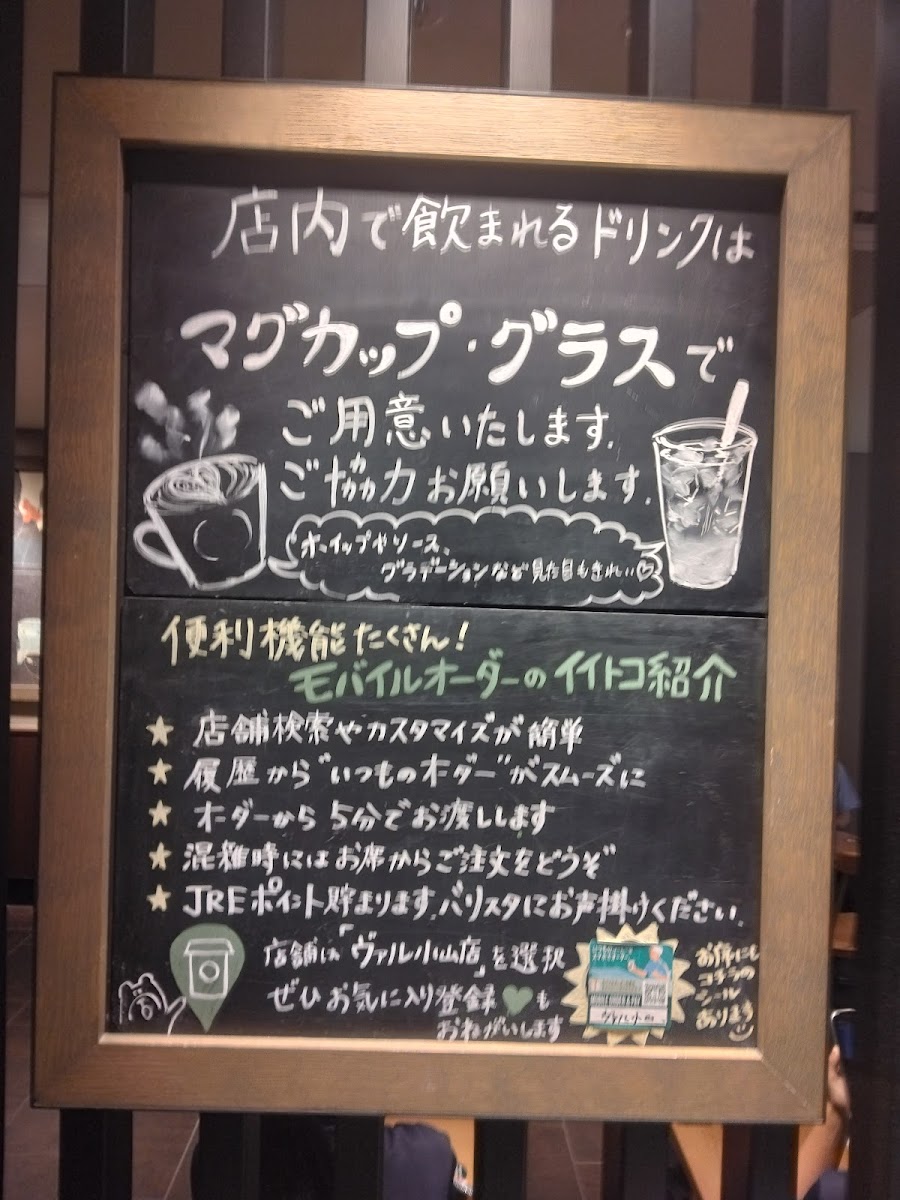 店内で飲まれるドリンクは
マグカップ・グラスで
ご用意いたします。
ご協力お願いします。
ホイップやソース、
グラデーションなど見た目もきれい♡
便利機能たくさん!
モバイルオーダーのイイトコ紹介
★ 店舗検索やカスタマイズが簡単
★ 履歴から"いつものオーダー"がスムーズに
★ オーダーから5分でお渡しします
★ 混雑時にはお席からご注文をどうぞ
★ JREポイント貯まります。バリスタにお声掛けください。
店舗は「ヴァル小山店」を選択
ぜひお気に入り登録♥も
おねがいします
お席にも
コチラの
シール
あります